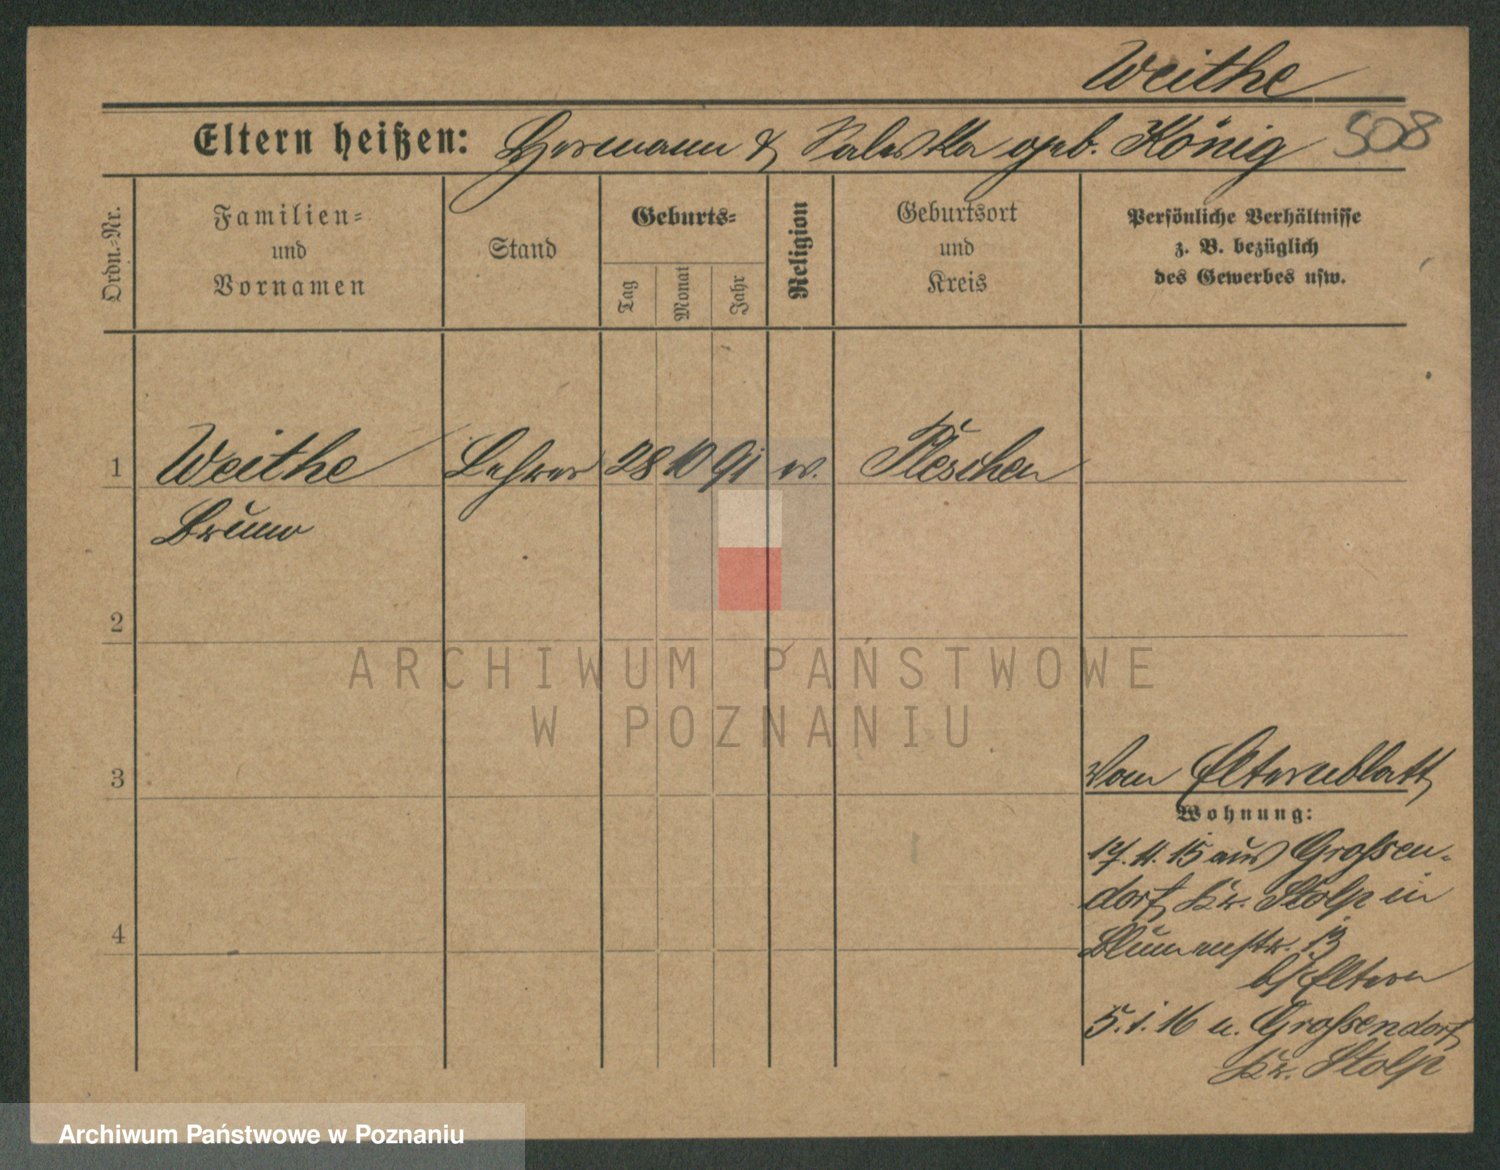 Weithe
Eltern heißen: Hermann & Valeska geb. König 508
Ordn.-Nr.
Familien-
und
Vornamen
Stand
Geburts-
Tag
Monat
Jahr
Religion
Geburtsort
und
Kreis
Persönliche Verhältnisse
z. B. bezüglich
des Gewerbes usw.
1 Weithe Lehrer 28 10 91 ev. Pleschen
Bruno
2
3
4
Vom Elternblatt
Wohnung:
17.11.15 aus Großen-
dorf, Kr. Stolp in
Blumenstr. 13
b/ Eltern
5.1.16 n. Großendorf
Kr. Stolp
ARCHIWUM PAŃSTWOWE
W POZNANIU
Archiwum Państwowe w Poznaniu